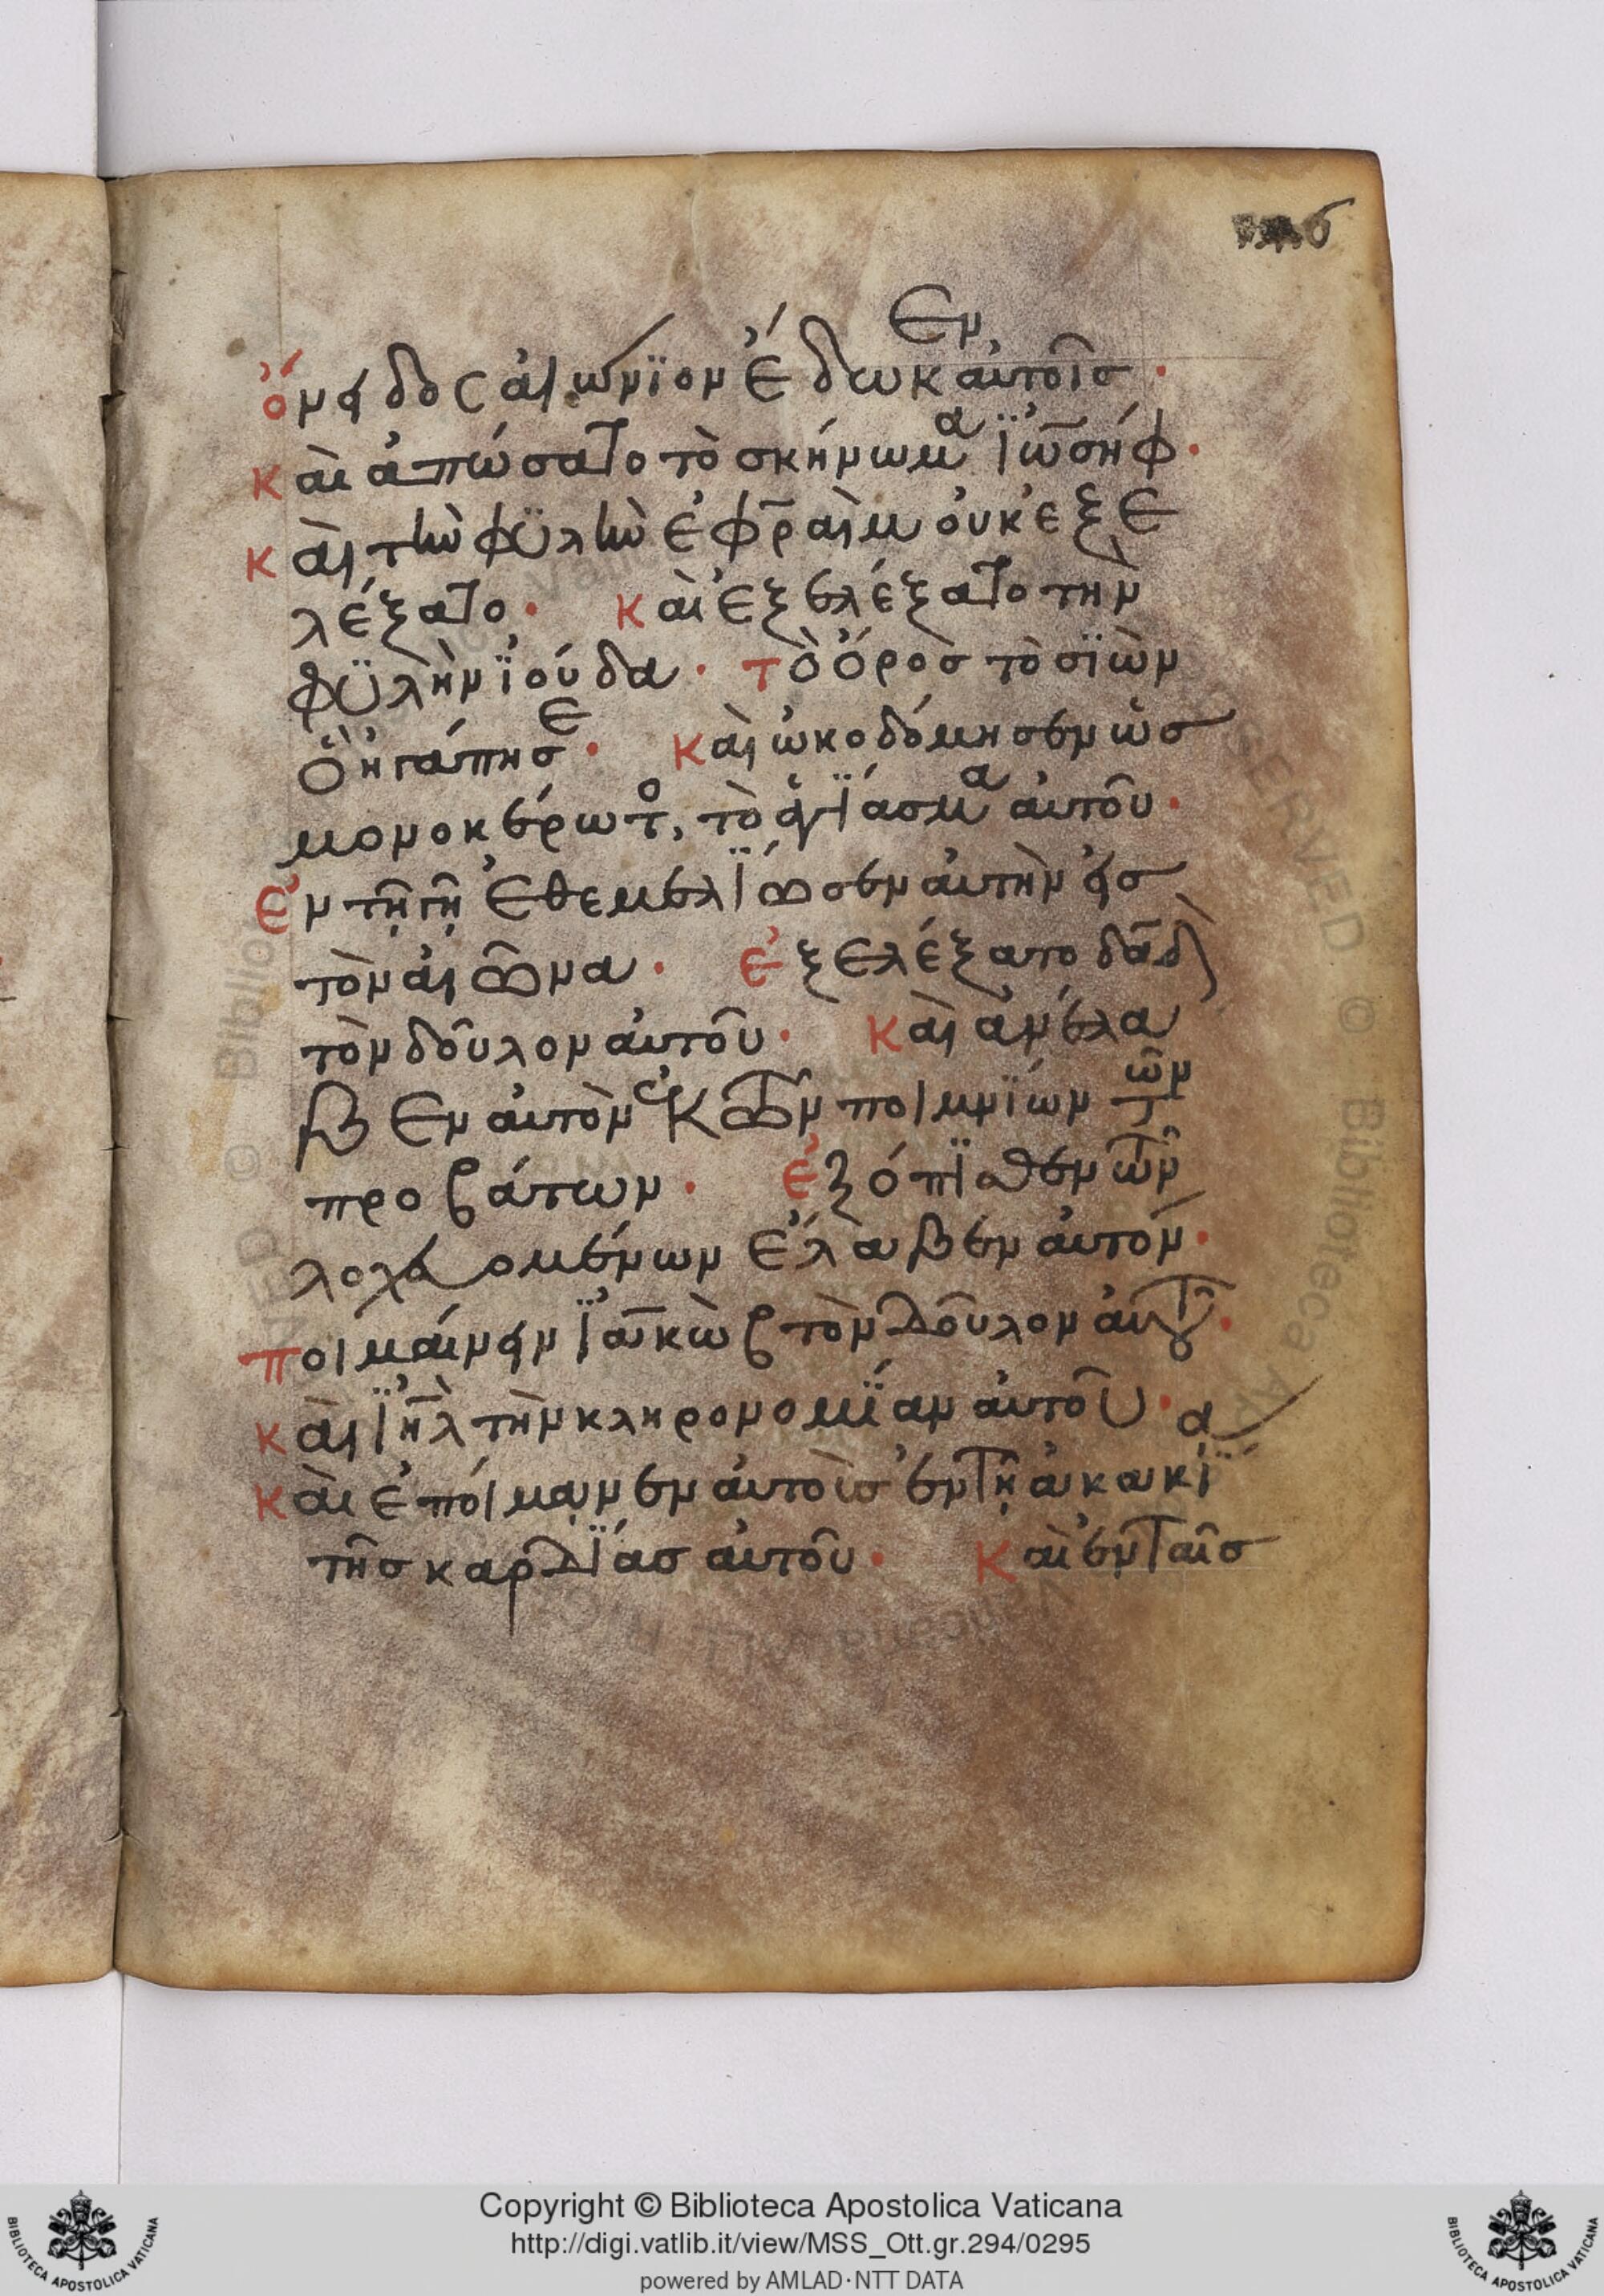 ὄνειδος αἰώνϊον ἔδωκεν αὐτοῖσ·
καὶ ἀπώσατο τὸ σκήνωμα ϊωσήφ·
καὶ τὴν φϋλὴν ἐφραὶμ οὐκ εξε
λέξατο· καὶ ἐξελέξατο τὴν
φϋλὴν ϊούδα· τὸ ὄροσ τὸ σϊὼν
ὃ ἠγάπησε· καὶ ὠκοδόμησεν ὡσ
μονοκέρωτο, τὸ ἁγϊάσμα αὐτοῦ·
ἐν τῆ γῆ ἐθεμελϊωσεν αὐτὴν εἰσ
τὸν αἰῶνα· ἐξελέξατο δᾱδ
τὸν δοῦλον αὐτοῦ· καὶ ἀνέλα
βεν αὐτὸν ἐκ τῶν ποιμνϊων τῶν
προβάτων· ἐξόπϊσθεν τῶν
λοχευομένων ἔλαβεν αὐτόν·
ποιμαίνειν ϊακὼβ τὸν δοῦλον αὐτοῦ·
καὶ ϊη̄λ τὴν κληρονομϊαν αὐτοῦ·
καὶ ἐποίμανεν αὐτοὺσ ἐν τῆ ἀκακϊα
τῆσ καρδϊασ αὐτοῦ· καὶ ἐν ταῖσ
Copyright © Biblioteca Apostolica Vaticana
http://digi.vatlib.it/view/MSS_Ott.gr.294/0295
powered by AMLAD·NTT DATA
BIBLIOTECA APOSTOLICA VATICANA
BIBLIOTECA APOSTOLICA VATICANA